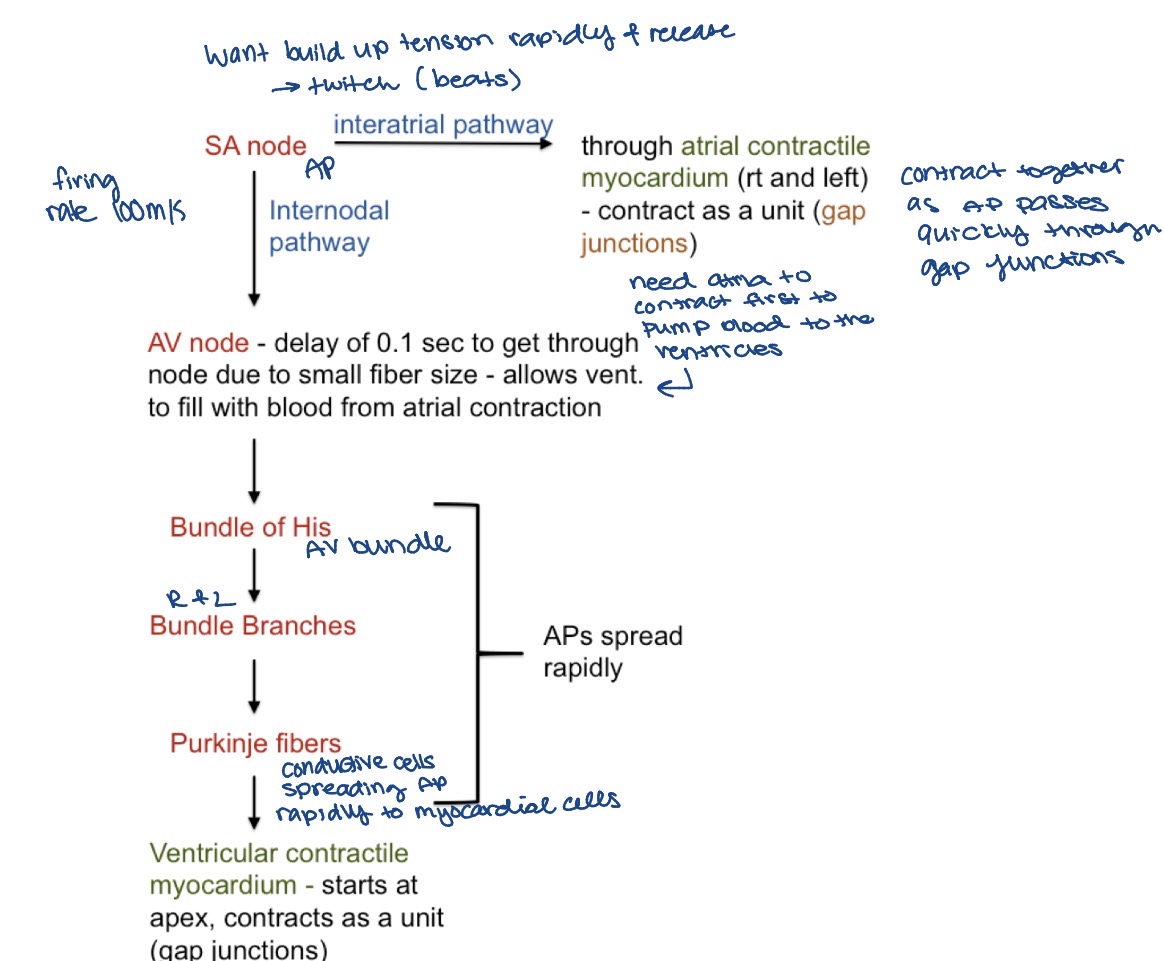 want build up tension rapidly & release
→ twitch (beats)
interatrial pathway
SA node
AP
firing
rate 100m/s
Internodal
pathway
through atrial contractile
myocardium (rt and left)
- contract as a unit (gap
junctions)
contract together
as AP passes
quickly through
gap junctions
need atria to
contract first to
pump blood to the
ventricles
AV node - delay of 0.1 sec to get through
node due to small fiber size - allows vent.
to fill with blood from atrial contraction
Bundle of His
AV bundle
R & L
Bundle Branches
APs spread
rapidly
Purkinje fibers
conductive cells
spreading AP
rapidly to myocardial cells
Ventricular contractile
myocardium - starts at
apex, contracts as a unit
(gap junctions)